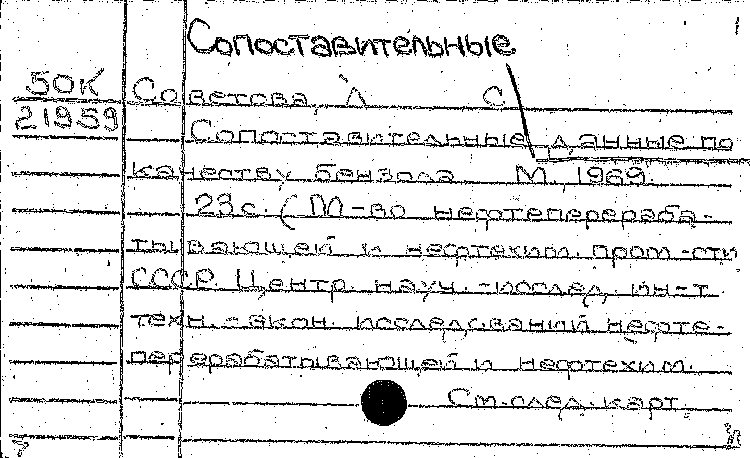 Сопоставительные
50К
21959
Советова, Л С.
Сопоставительные данные по
качеству бензола М., 1969.
23с. (М-во нефтеперераба-
тывающей и нефтехим. пром-сти
СССР. Центр. науч.-исслед. ин-т
техн.-экон. исследований нефте-
перерабатывающей и нефтехим.
См. след. карт.